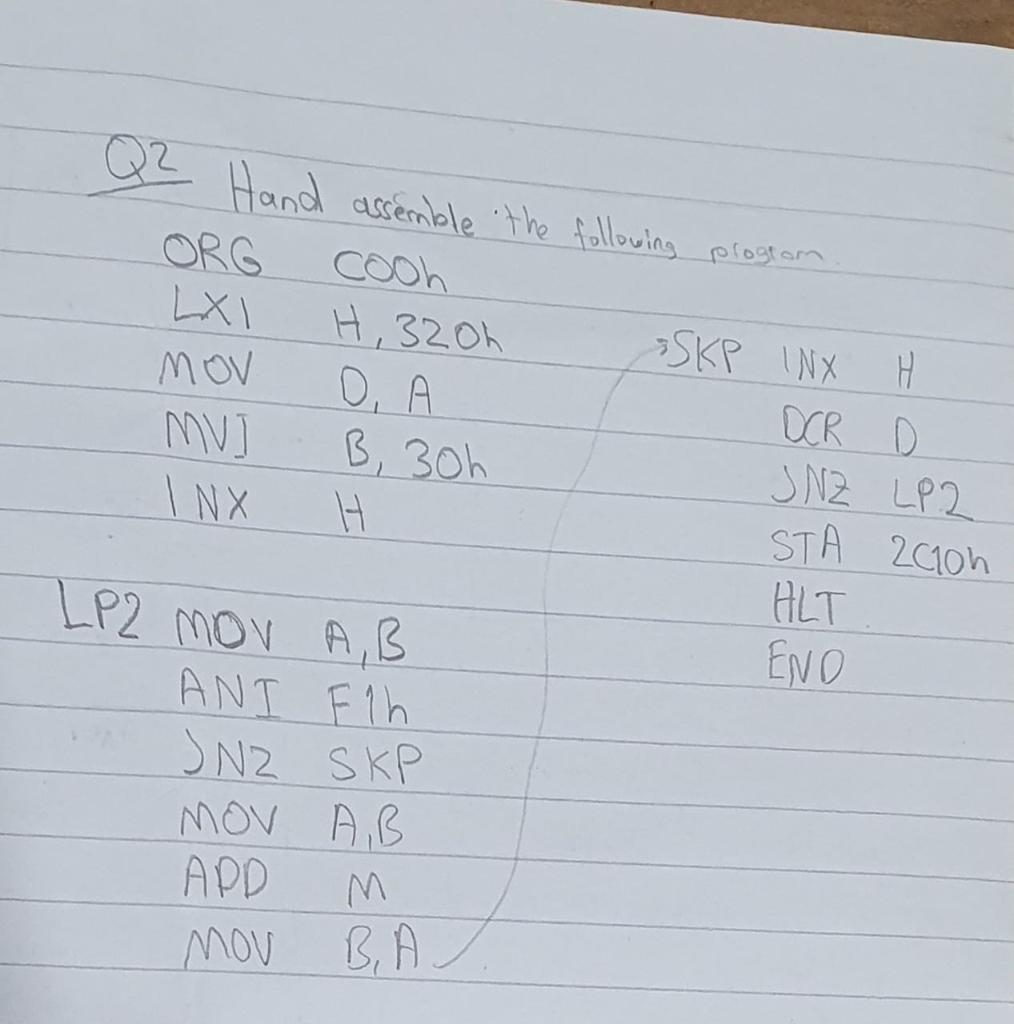 Q2 Hand assemble the following program.
ORG C00h
LXI H, 320h
MOV D, A
MVI B, 30h
INX H
LP2 MOV A,B
ANI F1h
JNZ SKP
MOV A,B
ADD M
MOV B,A
SKP INX H
DCR D
JNZ LP2
STA 2C10h
HLT
END